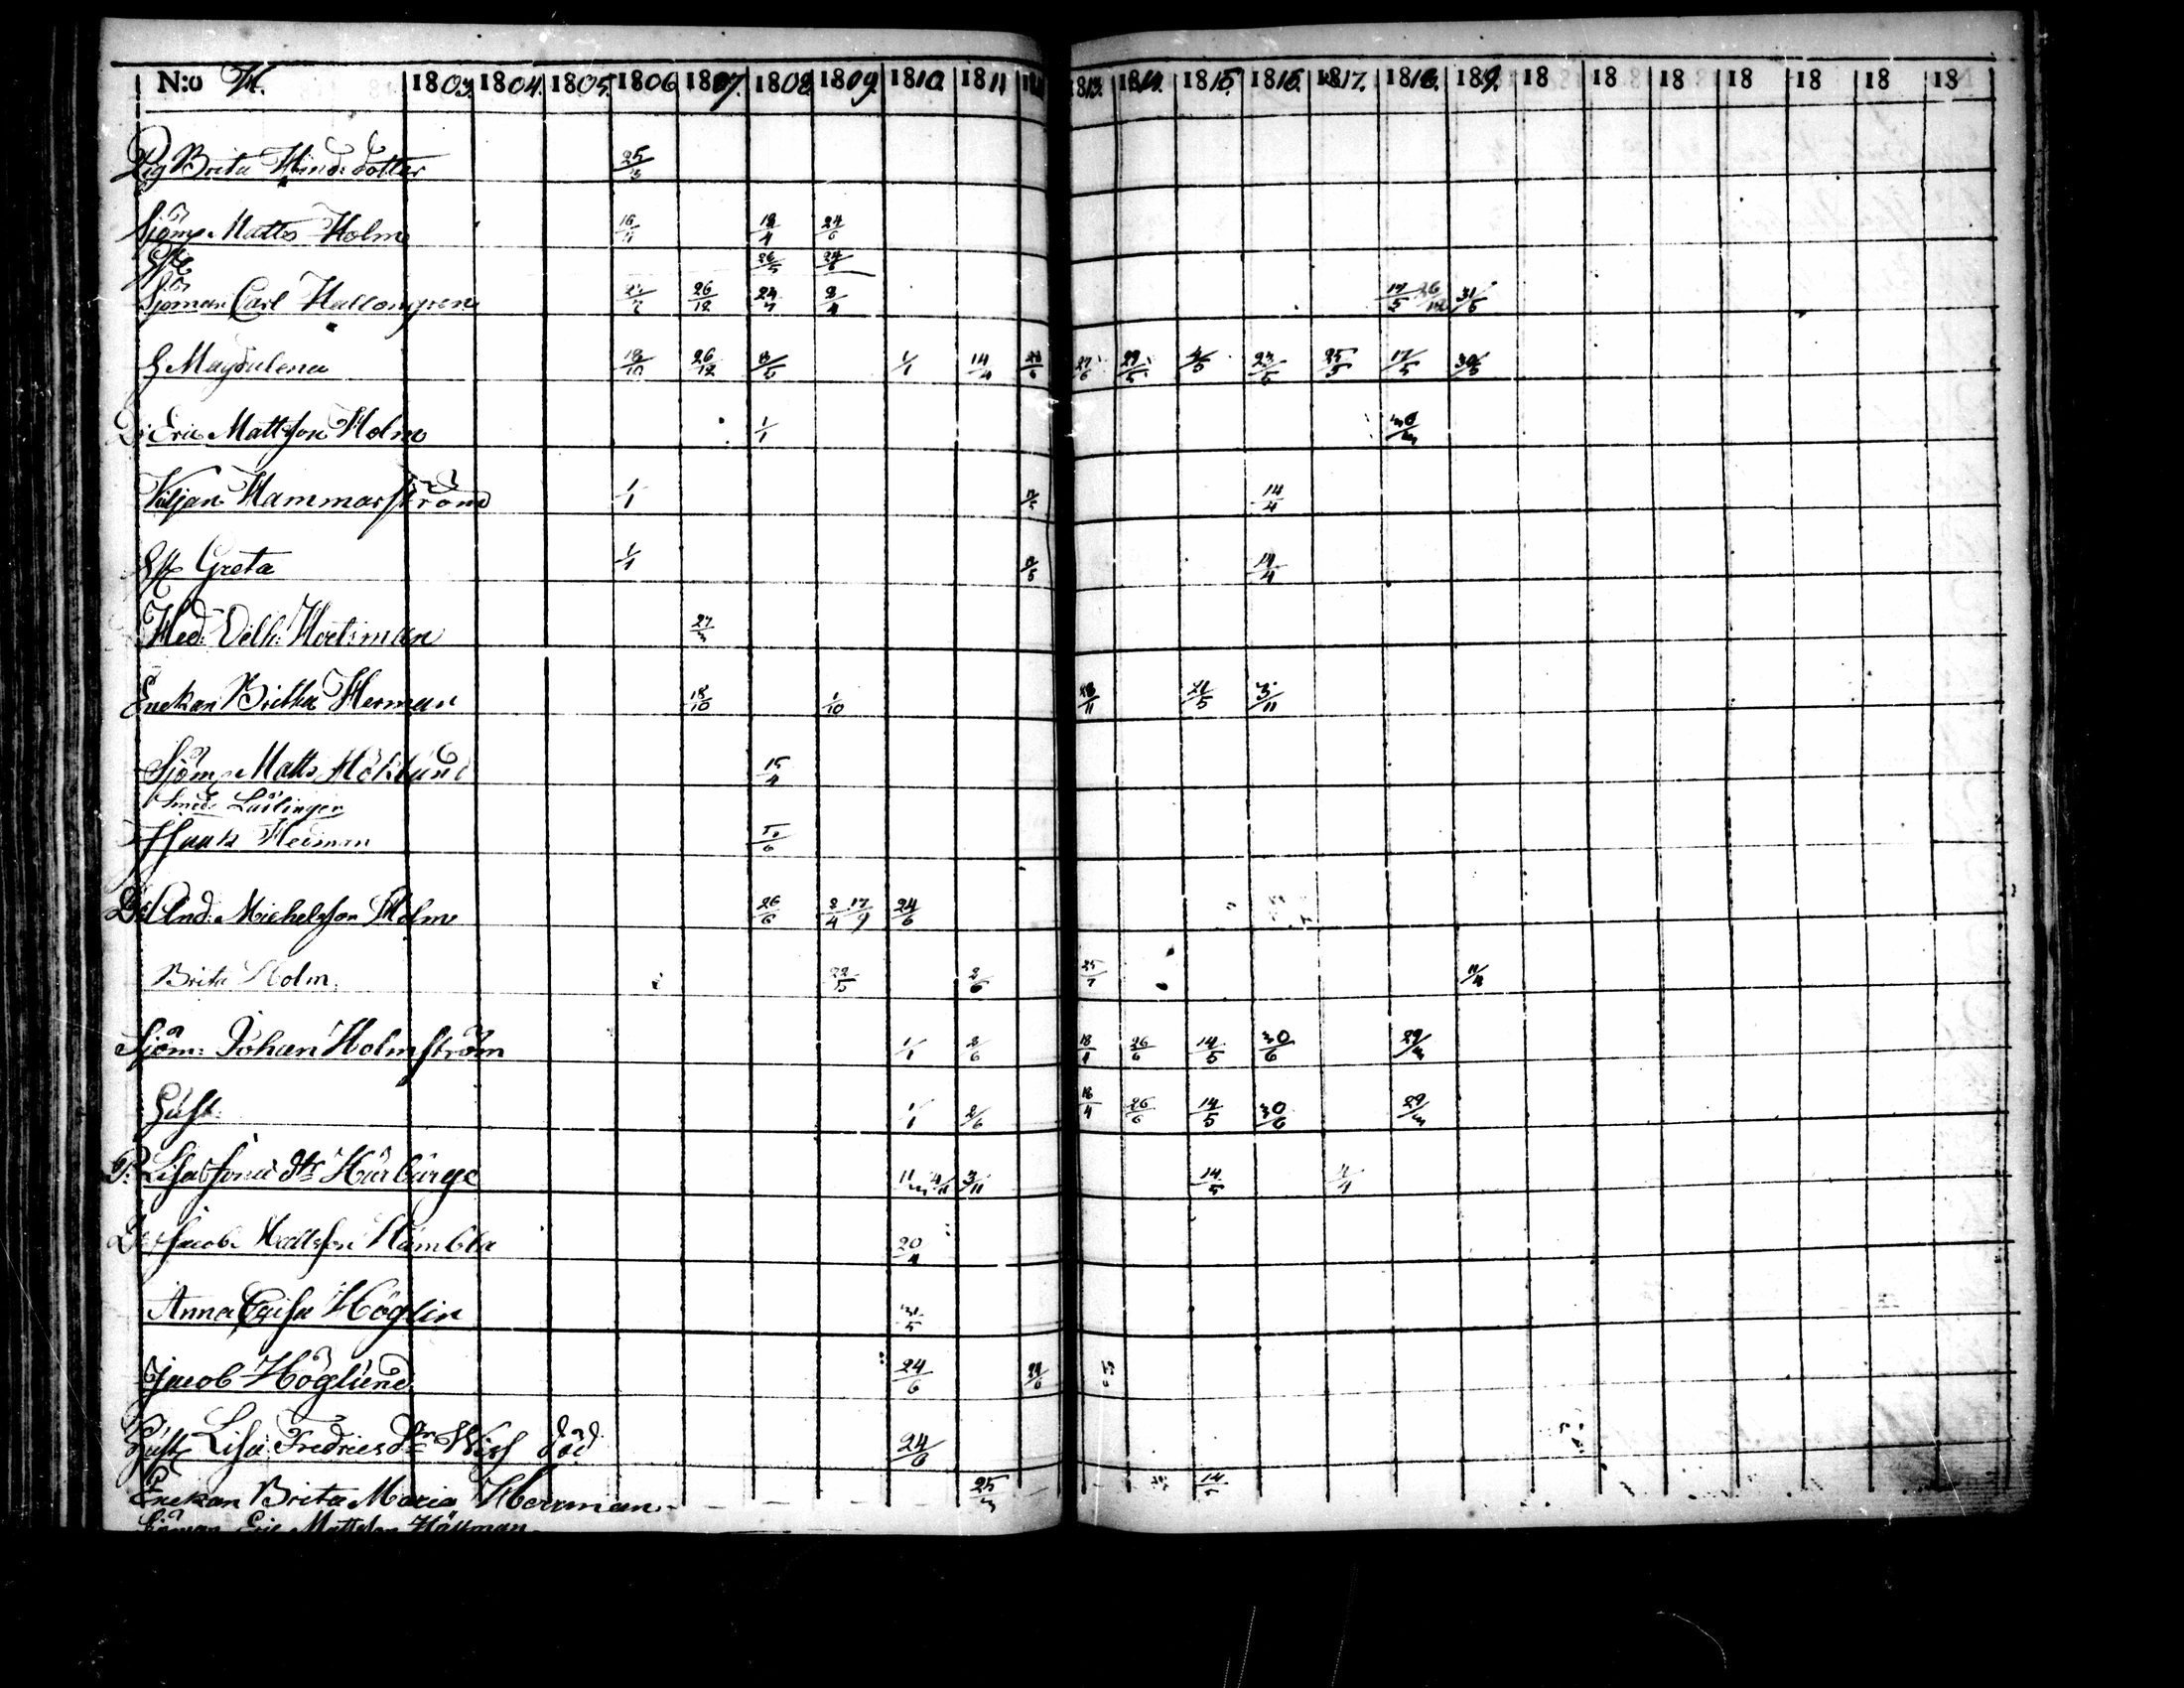 N:o H. 1803. 1804. 1805. 1806 1807. 1808 1809. 1810 1811 1813. 1814. 1815. 1816. 1817. 1818. 1819. 18 18 18 18 18 18 18
Pig Brita Hind:dotter 25/3
Sjöm: Matts Holm 16/4 18/4 24/6
26/5 24/6
Sjöman Carl Hallongren 26/12 24/7 2/4 17/5 26/12 31/5
H Magdalena 18/10 26/12 1/1 14/4 27/6 29/5 23/5 25/5 17/5 30/5
Dr: Eric Mattsson Holm 1/1 30/3
Viljan Hammarström 1/1 14/4
H Greta 1/1 14/4
Hed: Vilh: Hortsman 27/3
Enckan Britha Herman 18/10 1/10 28/11 21/5 3/11
Sjöm: Matts Höklund 15/4
Smeds Lärlingen
Isaak Hedman
Dr And: Michelsson Holm 26/6 2/4 17/9 24/6
Brita Holm. 22/5 2/6 25/7 11/4
Sjöm: Johan Holmström 1/1 2/6 18/4 26/6 14/5 30/6 29/3
Hust 1/1 2/6 18/4 26/6 14/5 30/6 29/3
P: Lisa dtr Hårburge 3/11 14/5
Dr Jacob Mattsson Hambla 20/4
Anna Caisa Höglin
Jacob Höglund 24/6
Hust Lisa Fredricsdtr död 24/6
Enckan Brita Maria Herrman 25/3 14/5
Sjöman Eric Mattsson